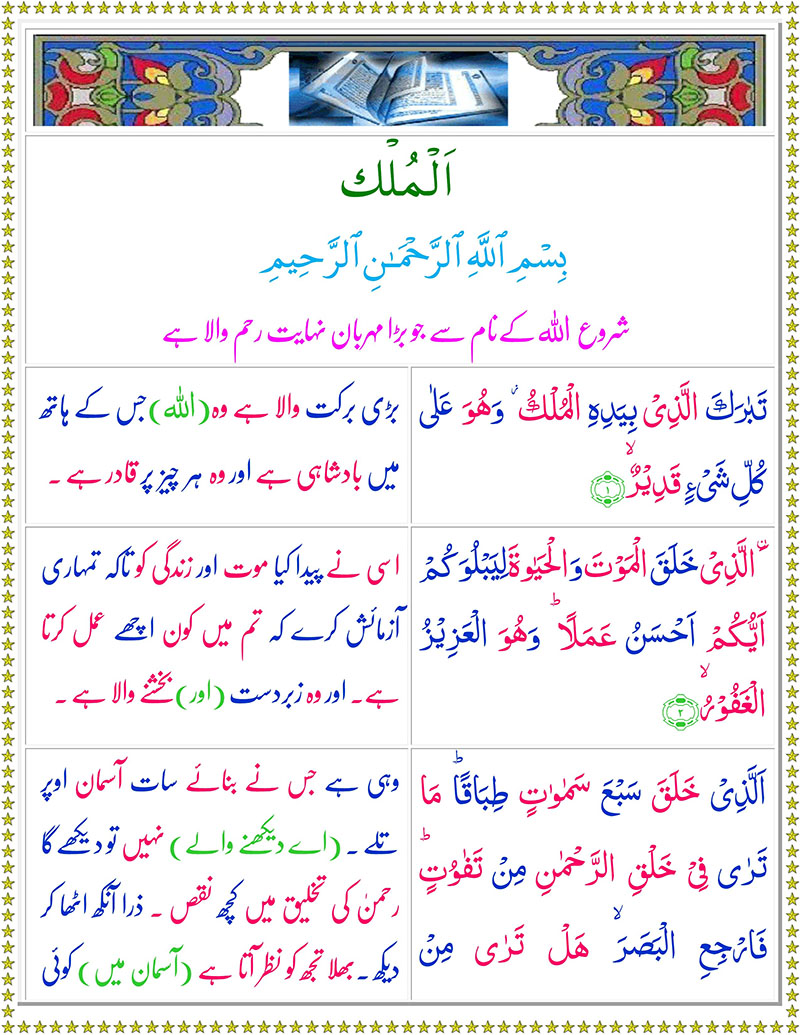 اَلْمُلْك
بِسْمِ ٱللَّهِ ٱلرَّحْمَـٰنِ ٱلرَّحِيمِ
شروع اللہ کے نام سے جو بڑا مہربان نہایت رحم والا ہے
تَبٰرَكَ الَّذِىْ بِيَدِهِ الْمُلْكُ ۡ وَهُوَ عَلٰى
كُلِّ شَىْءٍ قَدِيْرُۨ ۙ ﴿۱﴾
بڑی برکت والا ہے وہ (اللہ) جس کے ہاتھ
میں بادشاہی ہے اور وہ ہر چیز پر قادر ہے ۔
ۨالَّذِىْ خَلَقَ الْمَوْتَ وَالْحَيٰوةَ لِيَبْلُوَكُمْ
اَيُّكُمْ اَحْسَنُ عَمَلًا ؕ وَهُوَ الْعَزِيْزُ
الْغَفُوْرُ ۙ ﴿۲﴾
اسی نے پیدا کیا موت اور زندگی کو تاکہ تمہاری
آزمائش کرے کہ تم میں کون اچھے عمل کرتا
ہے۔ اور وہ زبردست (اور) بخشنے والا ہے ۔
اَلَّذِىْ خَلَقَ سَبْعَ سَمٰوٰتٍ طِبَاقًا ؕ مَا
تَرٰى فِىْ خَلْقِ الرَّحْمٰنِ مِنْ تَفٰوُتٍ ؕ
فَارْجِعِ الْبَصَرَ ۙ هَلْ تَرٰى مِنْ
وہی ہے جس نے بنائے سات آسمان اوپر
تلے ۔ (اے دیکھنے والے) نہیں تو دیکھے گا
رحمن کی تخلیق میں کچھ نقص ۔ ذرا آنکھ اٹھا کر
دیکھ ۔ بھلا تجھ کو نظر آتا ہے (آسمان میں) کوئی